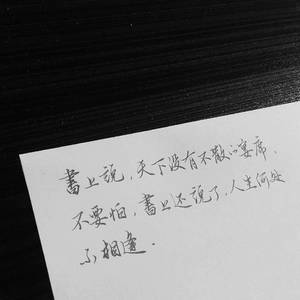 書上説，天下没有不散的宴席．
不要怕，書上还説了，人生何处
不相逢．